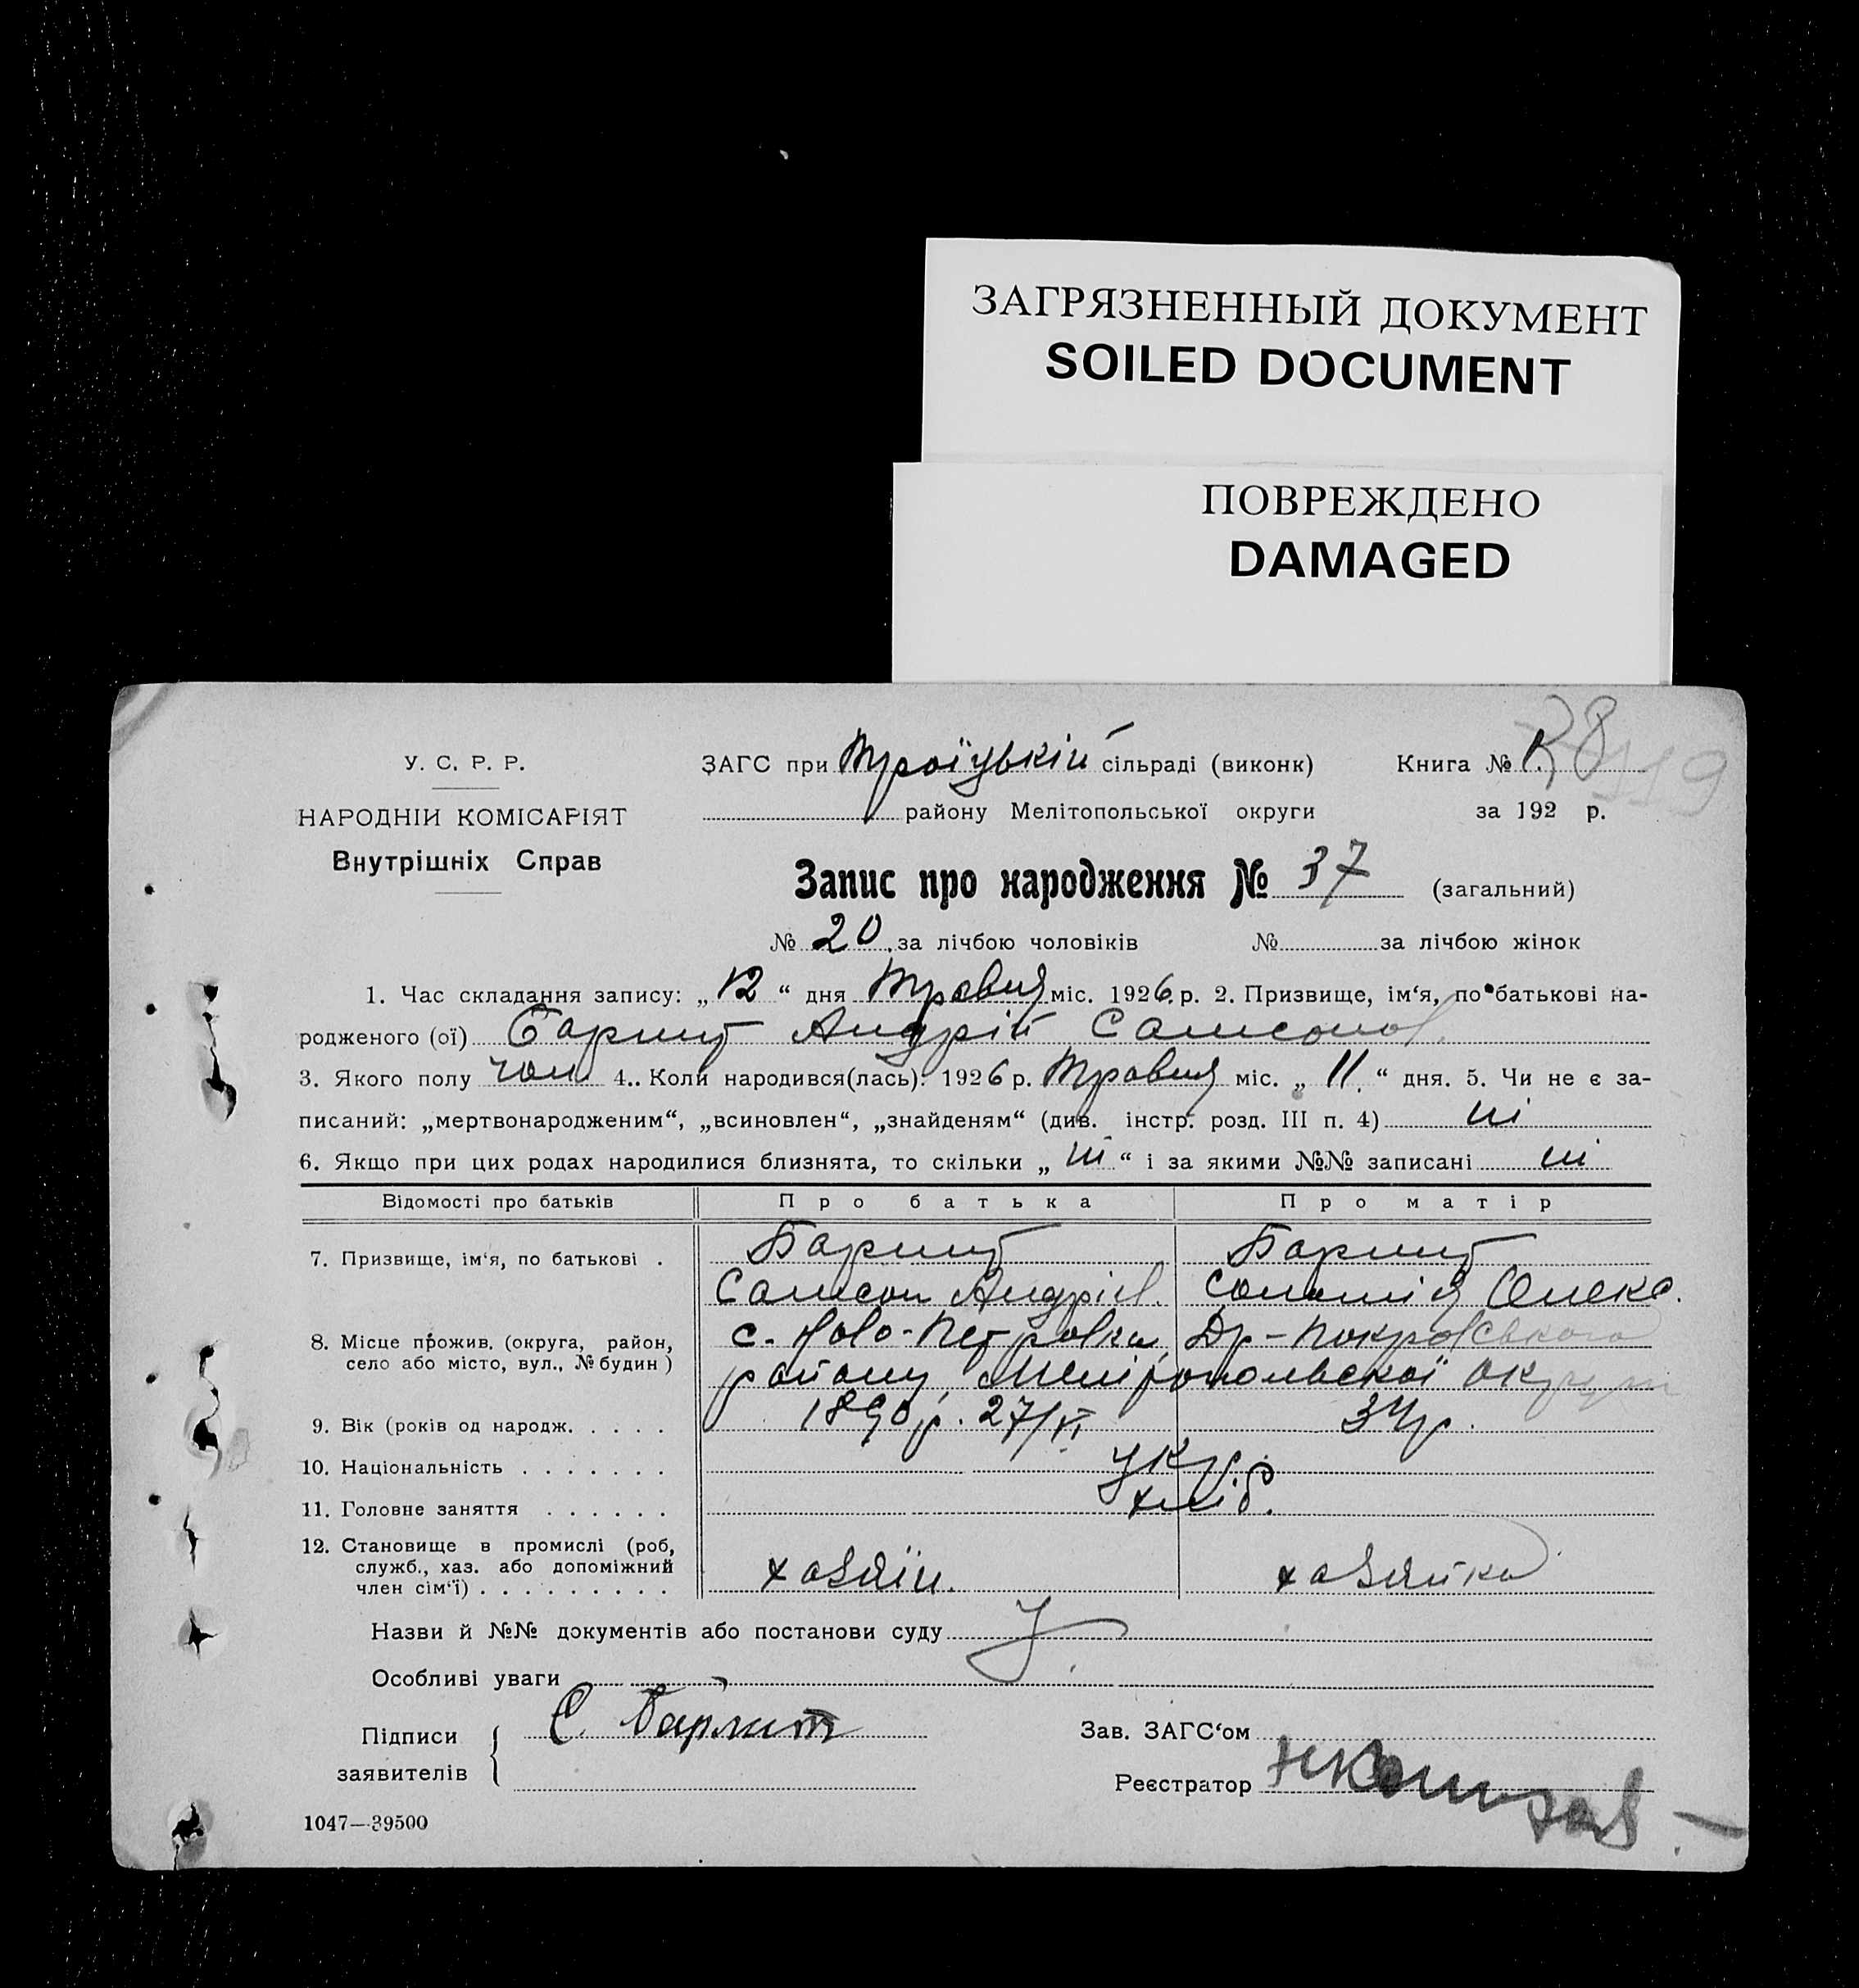 ЗАГРЯЗНЕННЫЙ ДОКУМЕНТ
SOILED DOCUMENT
ПОВРЕЖДЕНО
DAMAGED
У. С. Р. Р.
НАРОДНІЙ КОМІСАРІЯТ
Внутрішніх Справ
ЗАГС при Троїцькій сільраді (виконк) Книга №
району Мелітопольської округи за 192 р.
Запис про народження № 37 (загальний)
№ 20 за лічбою чоловіків № за лічбою жінок
1. Час складання запису: „12“ дня Травня міс. 1926 р. 2. Призвище, ім‘я, по батькові на-
родженого (ої) Бармут Андрій Самсонов.
3. Якого полу чол. 4.. Коли народився(лась): 1926 р. Травня міс. „11“ дня. 5. Чи не є за-
писаний: „мертвонародженим“, „всиновлен“, „знайденям“ (див. інстр. розд. III п. 4) ні
6. Якщо при цих родах народилися близнята, то скільки „ні“ і за якими №№ записані ні
Відомості про батьків Про батька Про матір
7. Призвище, ім‘я, по батькові . Бармут Бармут
Самсон Андрієв. Соломія Олекс.
8. Місце прожив. (округа, район, село або місто, вул., № будин) с. Ново-Петровка, Др-Покровського
району, Меліпопольскої округи
9. Вік (років од народж. . . . . 1890 р. 27/VI 34 р.
10. Національність . . . . . . . укр.
11. Головне заняття . . . . . . хліб.
12. Становище в промислі (роб,
служб., хаз. або допоміжний
член сім‘ї) . . . . . . . . . хазяїн. хазяйка
Назви й №№ документів або постанови суду
Особливі уваги
Підписи заявителів С. Бармут
Зав. ЗАГС‘ом
Реєстратор
1047—39500